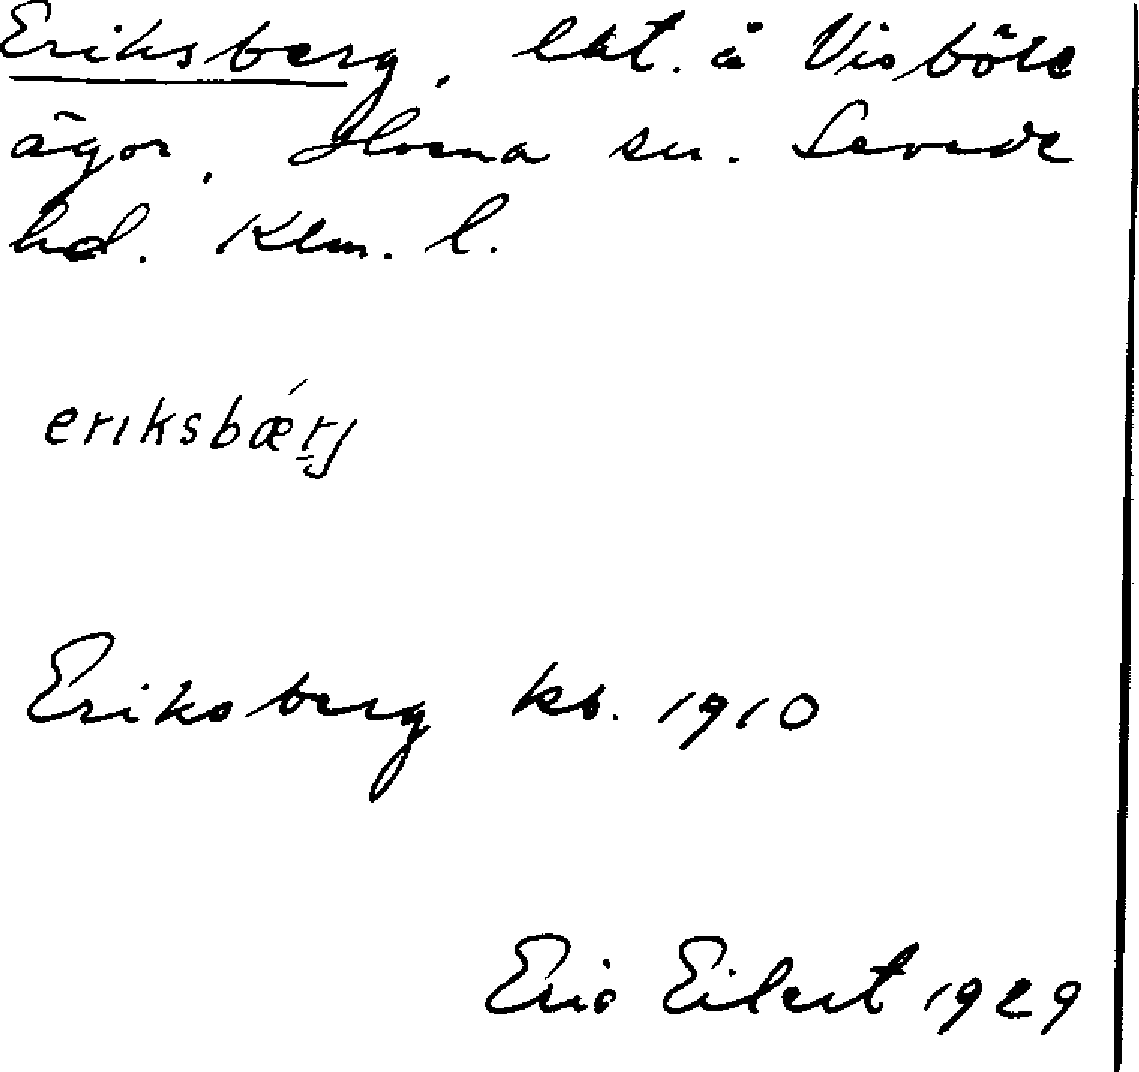 Eriksberg, lht. å Visböle
ägor, Hvena sn. Sevede
hd. Klm. l.
eriksbǽrj
Eriksberg kb. 1910
Eric Eilert 1929